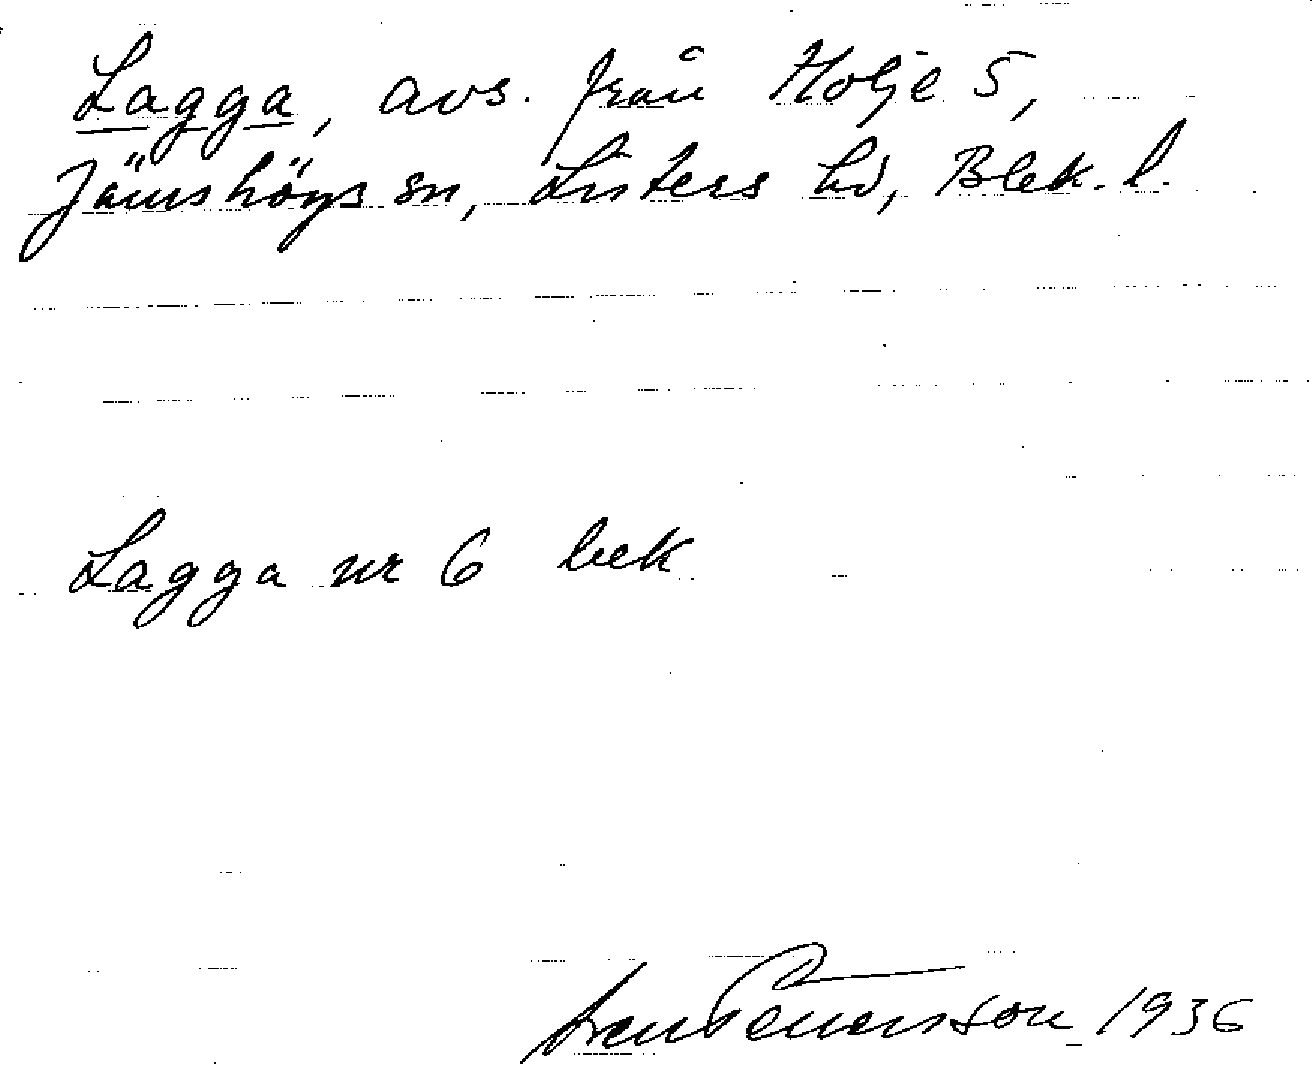 Lagga, avs. från Holje 5,
Jämshögs sn, Listers hd, Blek. l.
Lagga nr 6 bek
1936